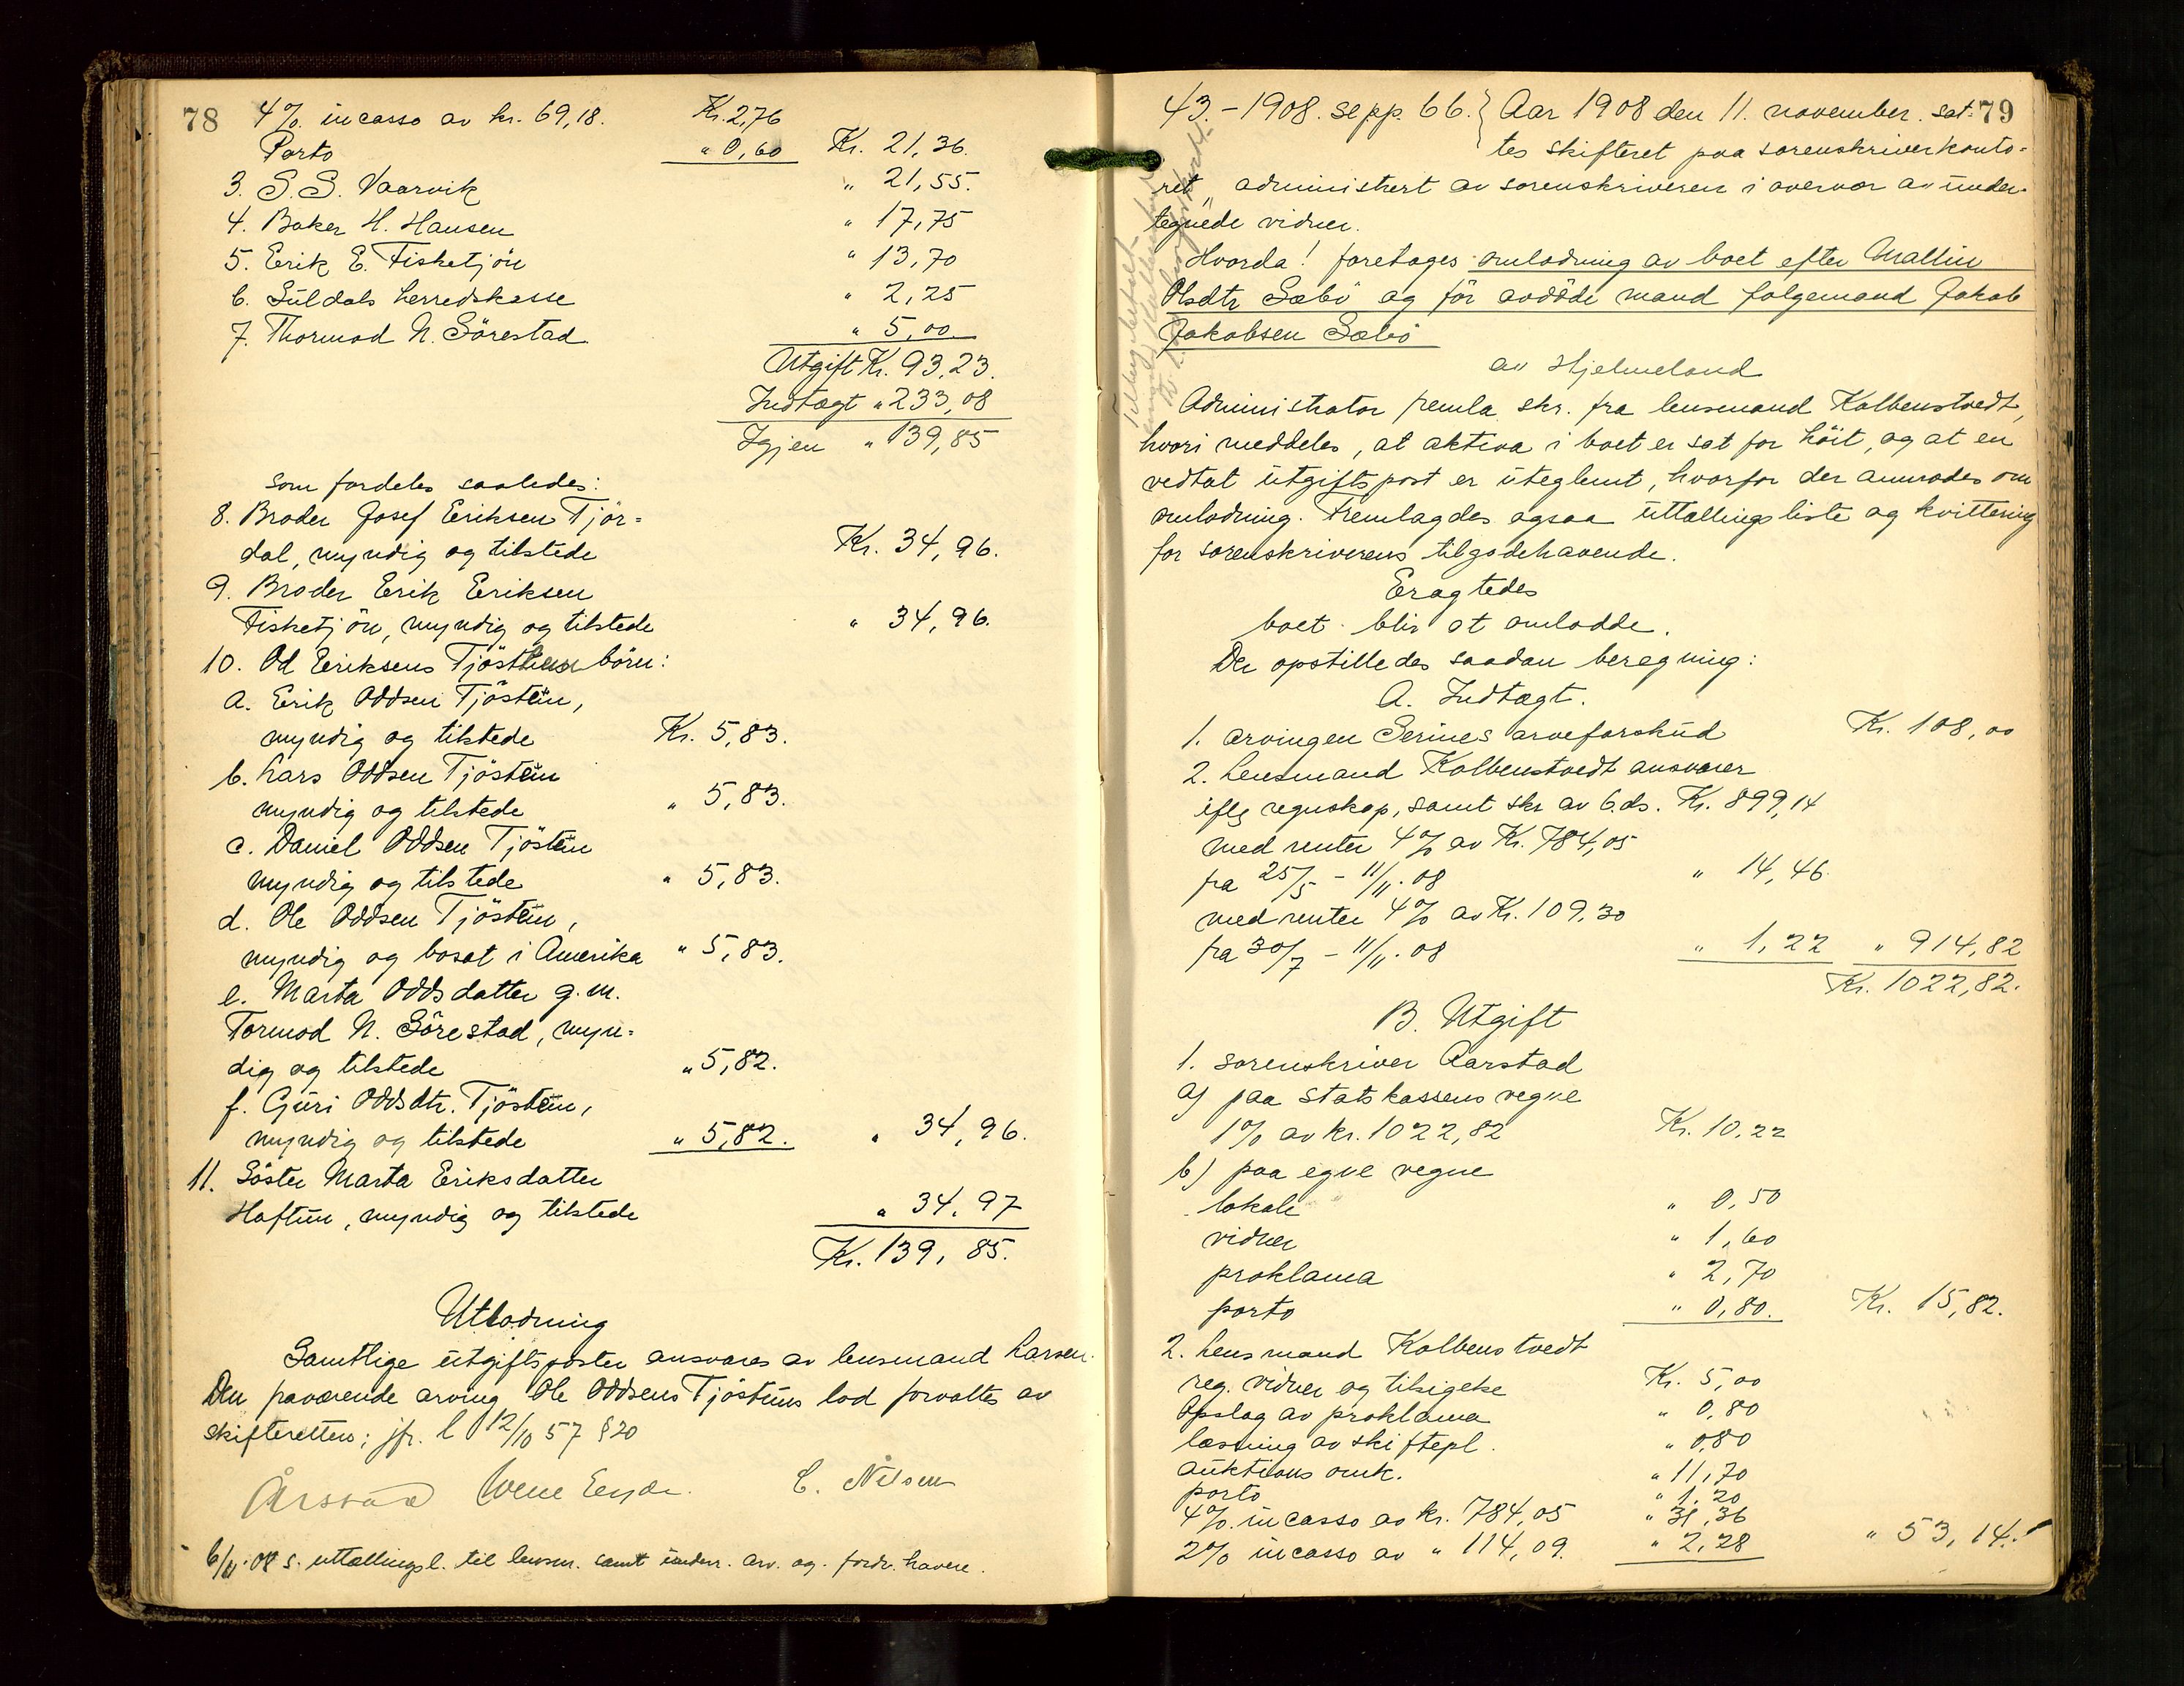 78
4% incasso av kr. 69,18. Kr. 2,76
Porto " 0,60 Kr. 21,36.
3. S. S. Vaarvik " 21,55.
4. Baker H. Hansen " 17,75
5. Erik E. Fisketjön " 13,70
6. Suldals herredskasse " 2,25
7. Thormod N. Sörestad " 5,00
Utgift Kr. 93,23.
Indtægt " 233,08
Igjen " 139,85
som fordeles saaledes:
8. Broder Josef Eriksen Tjör=
dal, myndig og tilstede Kr. 34,96.
9. Broder Erik Eriksen
Fisketjön, myndig og tilstede " 34,96.
10. Od Eriksens Tjöstheim börn:
a. Erik Oddsen Tjöstein,
myndig og tilstede Kr. 5,83.
b. Lars Oddsen Tjöstein
myndig og tilstede " 5,83.
c. Daniel Oddsen Tjöstein
myndig og tilstede " 5,83.
d. Ole Oddsen Tjöstein,
myndig og bosat i Amerika " 5,83.
e. Marta Oddsdatter g. m.
Tormod N. Sörestad, myn=
dig og tilstede " 5,82.
f. Guri Oddsdtr. Tjöstein,
myndig og tilstede " 5,82. " 34,96.
11. Söster Marta Eriksdatter
Haftun, myndig og tilstede " 34,97
Kr. 139,85.
Utlodning
Samtlige utgiftsposter ansvares av lensmand Larsen.
Den fraværende arving Ole Oddsens Tjösteins lod forvaltes av
skifteretten; jfr. l 12/10 57 § 20
Årstad C. Nilsen
6/11.08 s. uttællingsl. til lensm. samt underr. arv. og. fordr. havere.
43.-1908. se pp. 66. } Aar 1908 den 11. november. sat= 79
tes skifteret paa sorenskriverkonto=
ret, administrert av sorenskriveren i overvær av under=
tegnede vidner.
Hvorda! foretages omlodning av boet efter Mallin
Olsdtr Sæbö og för avdöde mand folgemand Jakob
Jakobsen Sæbö
av Hjelmeland
Administrator fremla skr. fra lensmand Kolbenstvedt,
hvori meddeles, at aktiva i boet er sat for höit, og at en
vedtat utgiftspost er uteglemt, hvorfor der anmodes om
omlodning. Fremlagdes ogsaa uttællingsliste og kvittering
for sorenskriverens tilgodehavende.
Eragtedes
boet blir at omlodde.
Der opstilledes saadan beregning:
A. Indtægt.
1. arvingen Serines arveforskud Kr. 108,00
2. Lensmand Kolbenstvedt ansvarer
iflg regnskap, samt skr av 6. ds. Kr. 899,14
med renter 4% av Kr. 784,05
fra 25/5 - 11/11.08 " 14,46.
med renter 4% av Kr. 109,30
fra 30/7 - 11/11.08 " 1,22 " 914,82
Kr. 1022,82.
B. Utgift
1. sorenskriver Aarstad
a) paa statskassens vegne
1% av kr. 1022,82 Kr. 10,22
b) paa egne vegne
lokale " 0,50
vidner " 1,60
proklama " 2,70
porto " 0,80. Kr. 15,82.
2. Lensmand Kolbenstvedt
reg. vidner og tilsigelse Kr. 5,00
Opslag av proklama " 0,80
læsning av skiftepl. " 0,80
auktions omk. " 11,70
porto " 1,20
4% incasso av kr. 784,05 " 31,36
2% incasso av " 114,09. " 2,28 " 53,14.